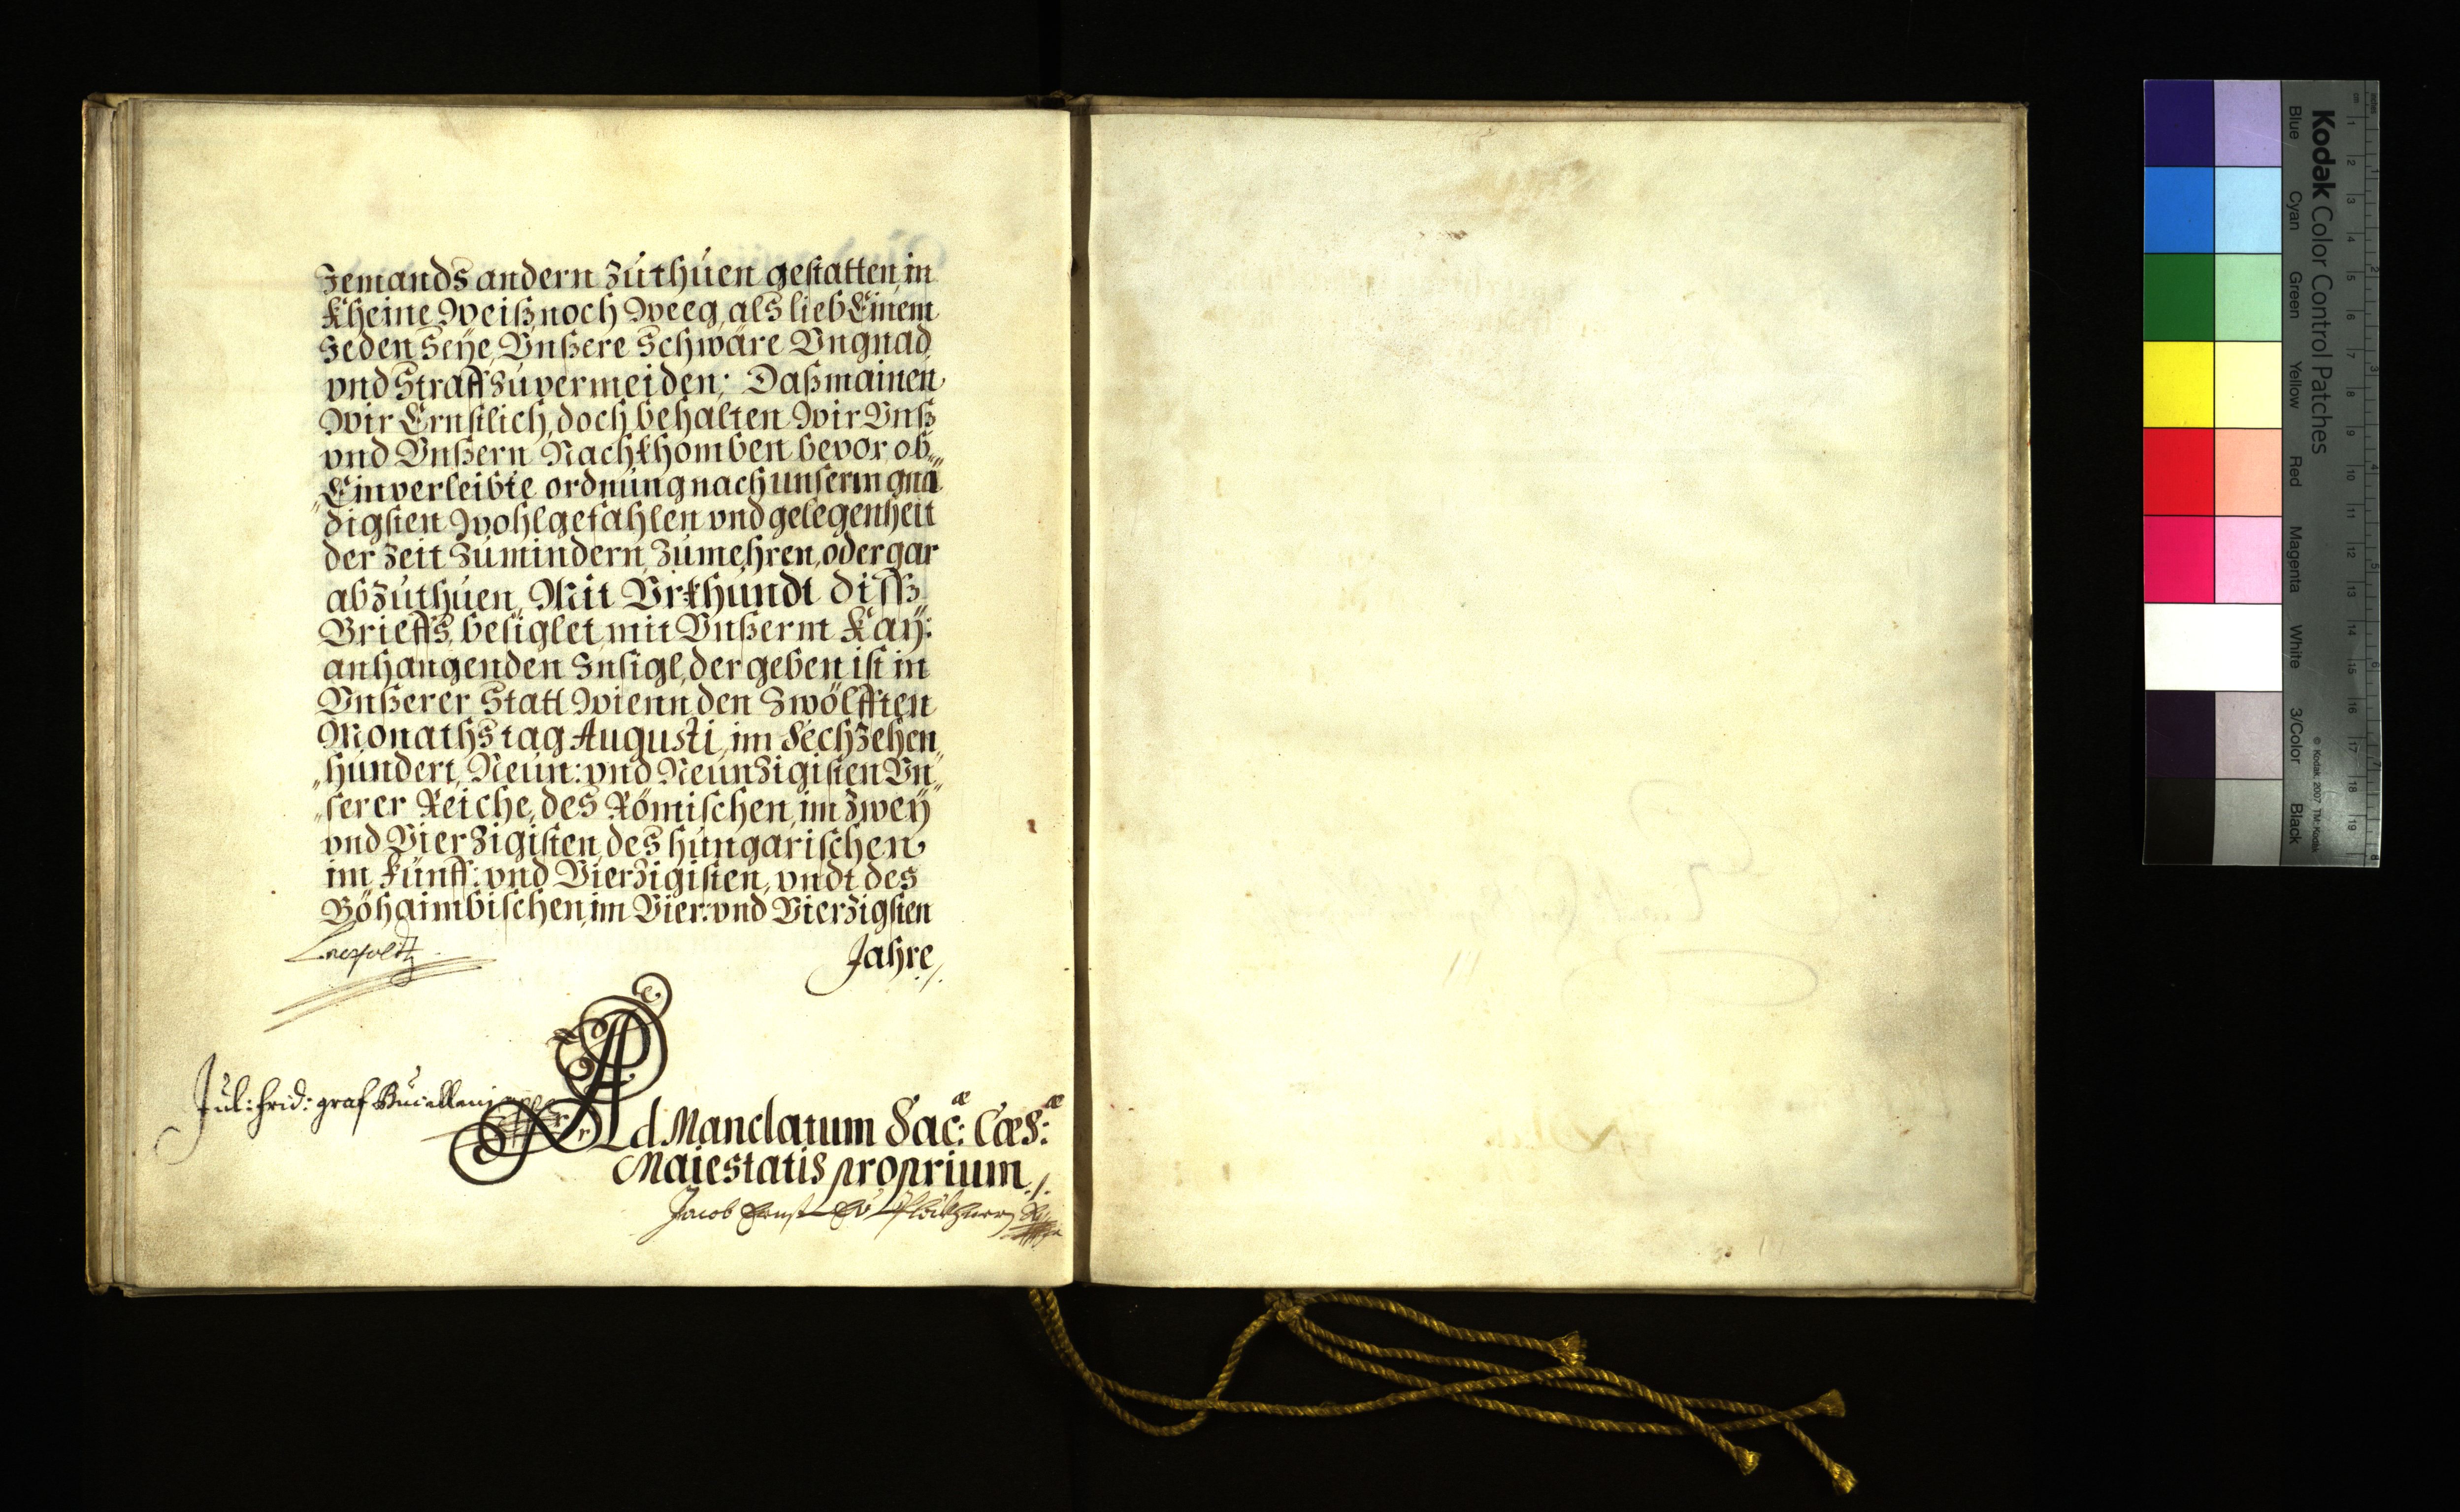 Jemands andern zuthuen gestatten, in
Kheine Weiß noch Weeg, als lieb Einem
Jeden Seye, Vnßere Schwäre Vngnad
vnd Straff zuvermeiden; Daß mainen
Wir Ernstlich, doch behalten Wir Vnß
vnd Vnßern Nachkhomben bevor ob„
„Einverleibte ordnung nach unserm gnä„
„digsten Wohlgefahlen vnd gelegenheit
der Zeit Zumindern, Zumehren, oder gar
abzuthuen, Mit Vrkhundt diss
Brieffs, besiglet mit Vnßerm Kay:
anhangenden Insigl, der geben ist in
Vnßerer Statt Wienn, den Zwölfften
Monathstag Augusti, im Sechzehen„
„hundert, Neun: vnd Neunzigisten Vn„
„serer Reiche, des Römischen, im Zwey
vnd Vierzigisten, des hungarischen
im Fünff: vnd Vierzigisten, vndt des
Böhaimbischen, im Vier: vnd Vierzigsten
Jahre.
Leopoldt
Jul: frid: graf Bucelleni
Ad Mandatum Sac:æ Cæs:æ
Maiestatis proprium./.
Jacob Ernst
Kodak Color Control Patches
Blue Cyan Green Yellow Red Magenta White 3/Color Black
© Kodak, 2007 TM: Kodak
cm 1 2 3 4 5 6 7 8 9 10 11 12 13 14 15 16 17 18 19
inches 1 2 3 4 5 6 7 8